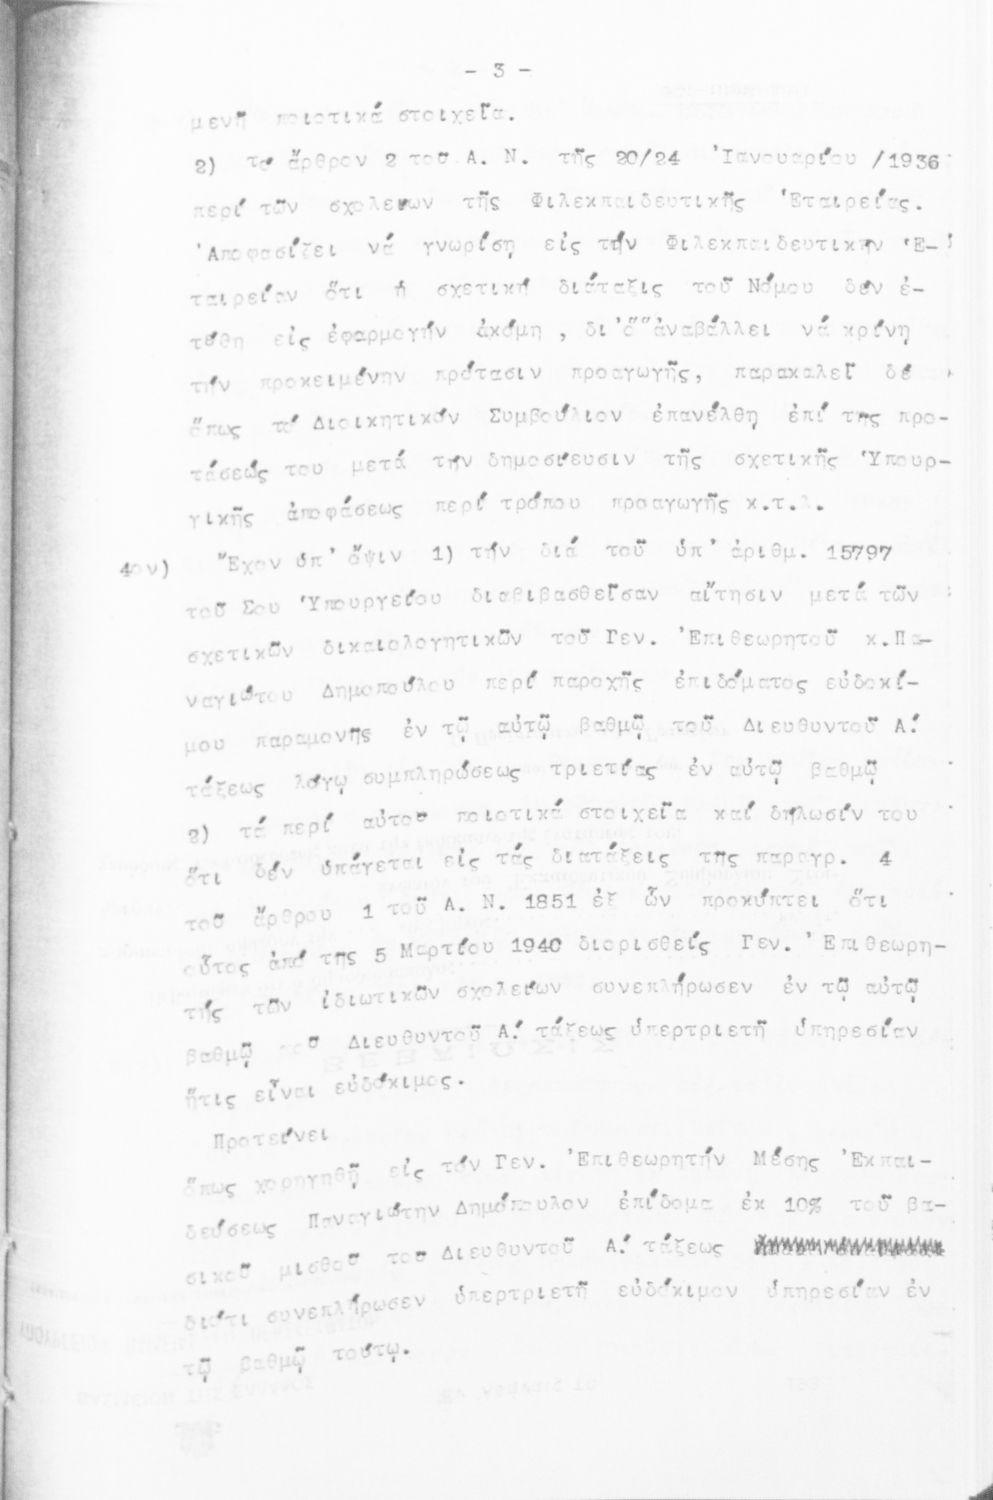 - 3 -
μενῆ ποιοτικά στοιχεῖα.
2) τό ἄρθρον 2 τοῦ Α. Ν. τῆς 20/24 Ἰανουαρίου /1936
περί τῶν σχολείων τῆς Φιλεκπαιδευτικῆς Ἑταιρείας.
Ἀποφασίζει νά γνωρίση εἰς τήν Φιλεκπαιδευτικήν Ἑ-
ταιρείαν ὅτι ἡ σχετική διάταξις τοῦ Νόμου δέν ἐ-
τέθη εἰς ἐφαρμογήν ἀκόμη , δι'ὅ ἀναβάλλει νά κρίνῃ
τήν προκειμένην πρότασιν προαγωγῆς, παρακαλεῖ δέ
ὅπως τό Διοικητικόν Συμβούλιον ἐπανέλθῃ ἐπί της προ-
τάσεώς του μετά τήν δημοσίευσιν τῆς σχετικῆς Ὑπουρ-
γικῆς ἀποφάσεως περί τρόπου προαγωγῆς κ.τ.λ.
4ον) Ἔχον ὑπ' ὄψιν 1) τήν διά τοῦ ὑπ' ἀριθμ. 15797
τοῦ Σου Ὑπουργείου διαβιβασθεῖσαν αἴτησιν μετά τῶν
σχετικῶν δικαιολογητικῶν τοῦ Γεν. Ἐπιθεωρητοῦ κ.Πα-
ναγιώτου Δημοπούλου περί παροχῆς ἐπιδόματος εὐδοκί-
μου παραμονῆς ἐν τῷ αὐτῷ βαθμῷ τοῦ Διευθυντοῦ Α.'
τάξεως λόγῳ συμπληρώσεως τριετίας ἐν αὐτῷ βαθμῷ
2) τά περί αὐτοῦ ποιοτικά στοιχεῖα καί δήλωσίν του
ὅτι δέν ὑπάγεται εἰς τάς διατάξεις της παραγρ. 4
τοῦ ἄρθρου 1 τοῦ Α. Ν. 1851 ἐξ ὧν προκύπτει ὅτι
οὗτος ἀπό της 5 Μαρτίου 1940 διορισθείς Γεν. Ἐπιθεωρη-
τής τῶν ἰδιωτικῶν σχολείων συνεπλήρωσεν ἐν τῷ αὐτῷ
βαθμῷ τοῦ Διευθυντοῦ Α.' τάξεως ὑπερτριετῆ ὑπηρεσίαν
ἥτις εἶναι εὐδόκιμος.
Προτείνει
ὅπως χορηγηθῇ εἰς τόν Γεν. Ἐπιθεωρητήν Μέσης Ἐκπαι-
δεύσεως Παναγιώτην Δημόπουλον ἐπίδομα ἐκ 10% τοῦ βα-
σικοῦ μισθοῦ τοῦ Διευθυντοῦ Α.' τάξεως
διότι συνεπλήρωσεν ὑπερτριετῆ εὐδόκιμον ὑπηρεσίαν ἐν
τῷ βαθμῷ τούτῳ.